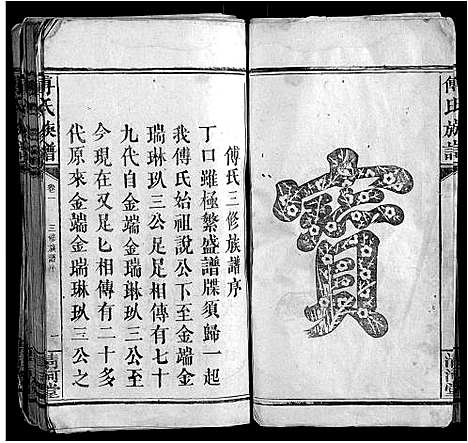 傅氏族譜
寳
清河堂
傅氏三修族譜序
丁口雖極繁盛譜牒須歸一起
我傅氏始祖說公下至金端金
瑞琳玖三公足足相傳有七十
九代自金端金瑞琳玖三公至
今現在又足匕相傳有二十多
代原來金端金瑞琳玖三公之
傅氏族譜
卷一
三修族譜序
一
清河堂